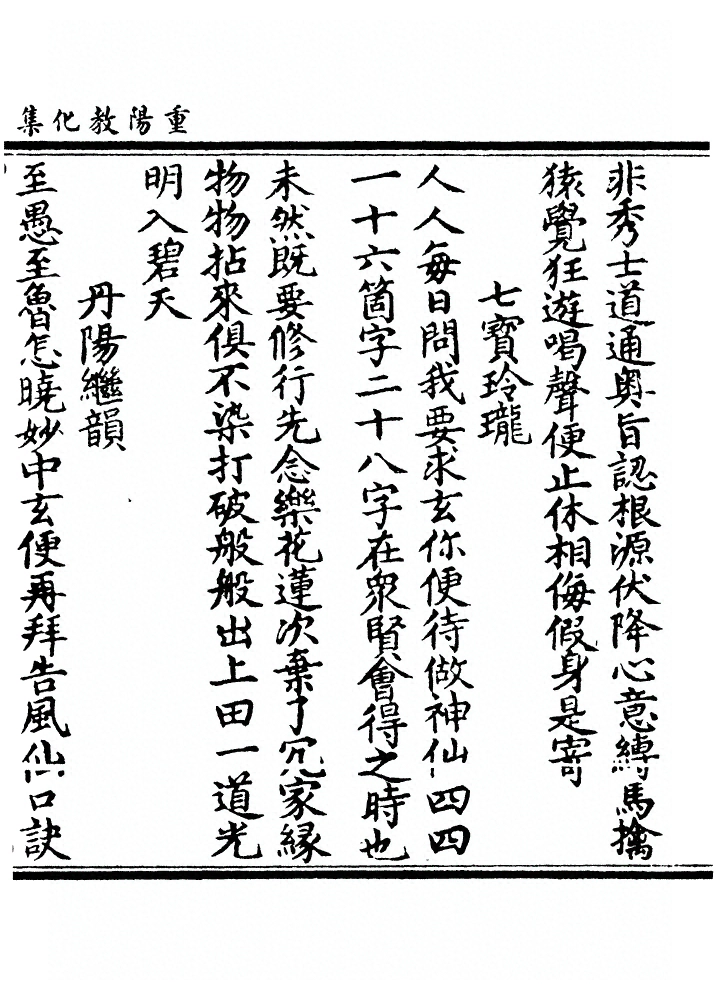 重陽教化集
非秀士道通奧旨認根源伏降心意縛馬擒
猿覺狂遊喝聲便止休相侮假身是寄
七寶玲瓏
人人每日問我要求玄你便待做神仙四四
一十六箇字二十八字在衆賢會得之時也
未然既要修行先念樂花蓮次棄了冗家緣
物物拈來俱不染打破般般出上田一道光
明入碧天
丹陽繼韻
至愚至魯怎曉妙中玄便再拜告風仙口訣